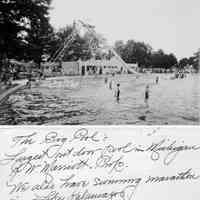 The Big Pool:
Largest out door Pool in Michigan
J.W. Marriott, Prop.
We also have swimming marathon
Kalamazoo